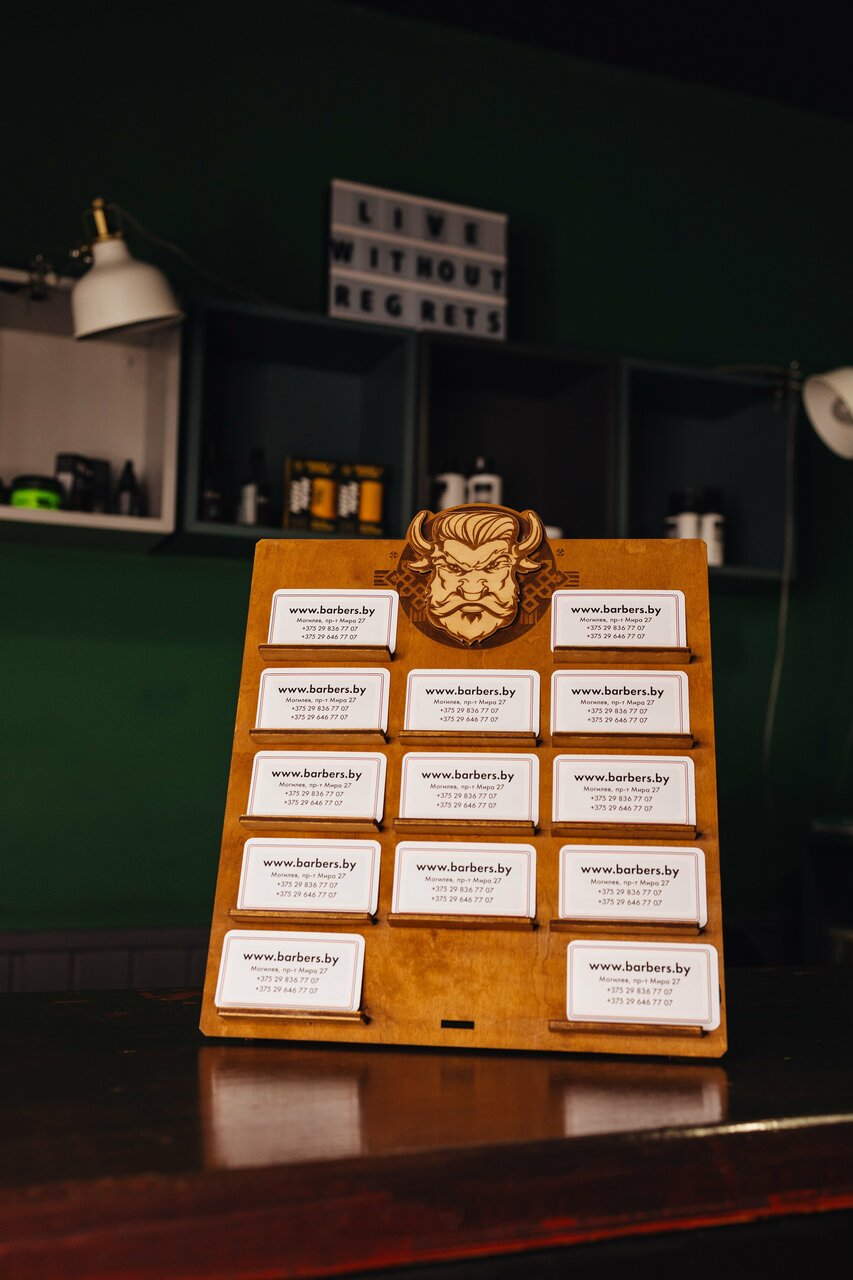 LIVE
WITHOUT
REGRETS
www.barbers.by
Могилев, пр-т Мира 27
+375 29 836 77 07
+375 29 646 77 07
www.barbers.by
Могилев, пр-т Мира 27
+375 29 836 77 07
+375 29 646 77 07
www.barbers.by
Могилев, пр-т Мира 27
+375 29 836 77 07
+375 29 646 77 07
www.barbers.by
Могилев, пр-т Мира 27
+375 29 836 77 07
+375 29 646 77 07
www.barbers.by
Могилев, пр-т Мира 27
+375 29 836 77 07
+375 29 646 77 07
www.barbers.by
Могилев, пр-т Мира 27
+375 29 836 77 07
+375 29 646 77 07
www.barbers.by
Могилев, пр-т Мира 27
+375 29 836 77 07
+375 29 646 77 07
www.barbers.by
Могилев, пр-т Мира 27
+375 29 836 77 07
+375 29 646 77 07
www.barbers.by
Могилев, пр-т Мира 27
+375 29 836 77 07
+375 29 646 77 07
www.barbers.by
Могилев, пр-т Мира 27
+375 29 836 77 07
+375 29 646 77 07
www.barbers.by
Могилев, пр-т Мира 27
+375 29 836 77 07
+375 29 646 77 07
www.barbers.by
Могилев, пр-т Мира 27
+375 29 836 77 07
+375 29 646 77 07
www.barbers.by
Могилев, пр-т Мира 27
+375 29 836 77 07
+375 29 646 77 07